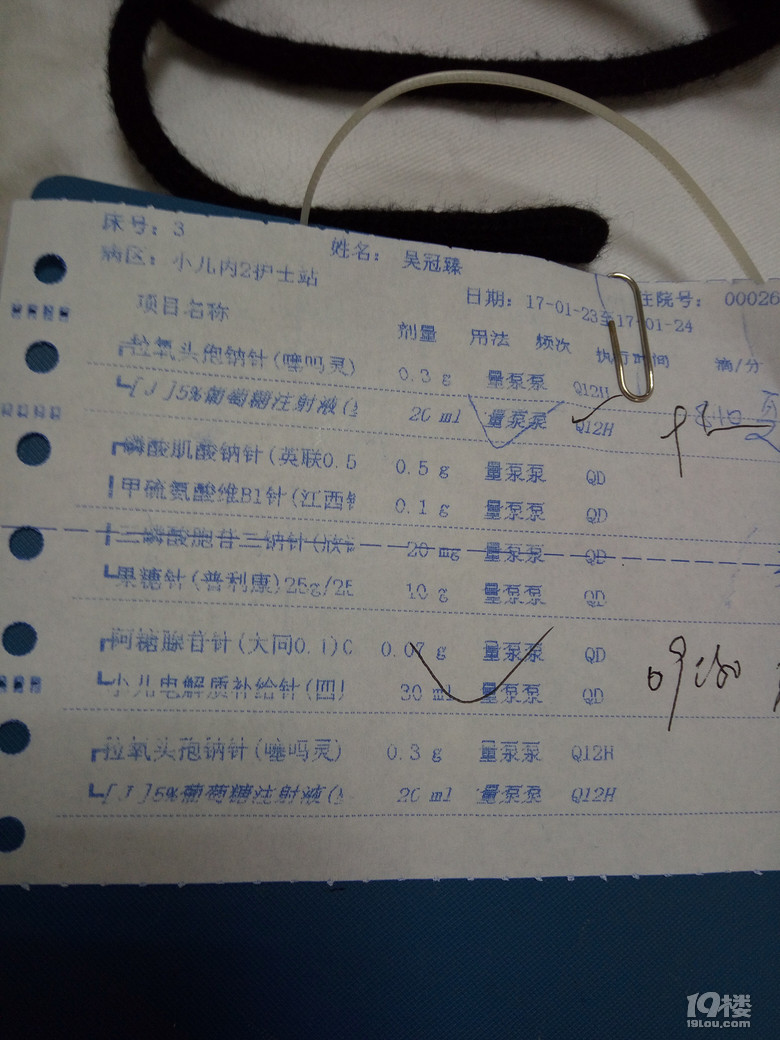 床号：3 姓名：吴冠臻
病区：小儿内2护士站 日期：17-01-23至17-01-24 住院号：00026
项目名称 剂量 用法 频次 执行时间 滴/分
拉氧头孢钠针(噻吗灵) 0.3 g 量泵泵 Q12H
[J]5%葡萄糖注射液( 20 ml 量泵泵 Q12H
磷酸肌酸钠针(英联0.5 0.5 g 量泵泵 QD
甲硫氨酸维B1针(江西 0.1 g 量泵泵 QD
三磷酸胞苷三钠针( 20 mg 量泵泵 QD
果糖针(普利康)25g/25 10 g 量泵泵 QD
阿糖腺苷针(大同0.1)C 0.07 g 量泵泵 QD
小儿电解质补给针(四 30 ml 量泵泵 QD
拉氧头孢钠针(噻吗灵) 0.3 g 量泵泵 Q12H
[J]5%葡萄糖注射液( 20 ml 量泵泵 Q12H
19楼
19lou.com